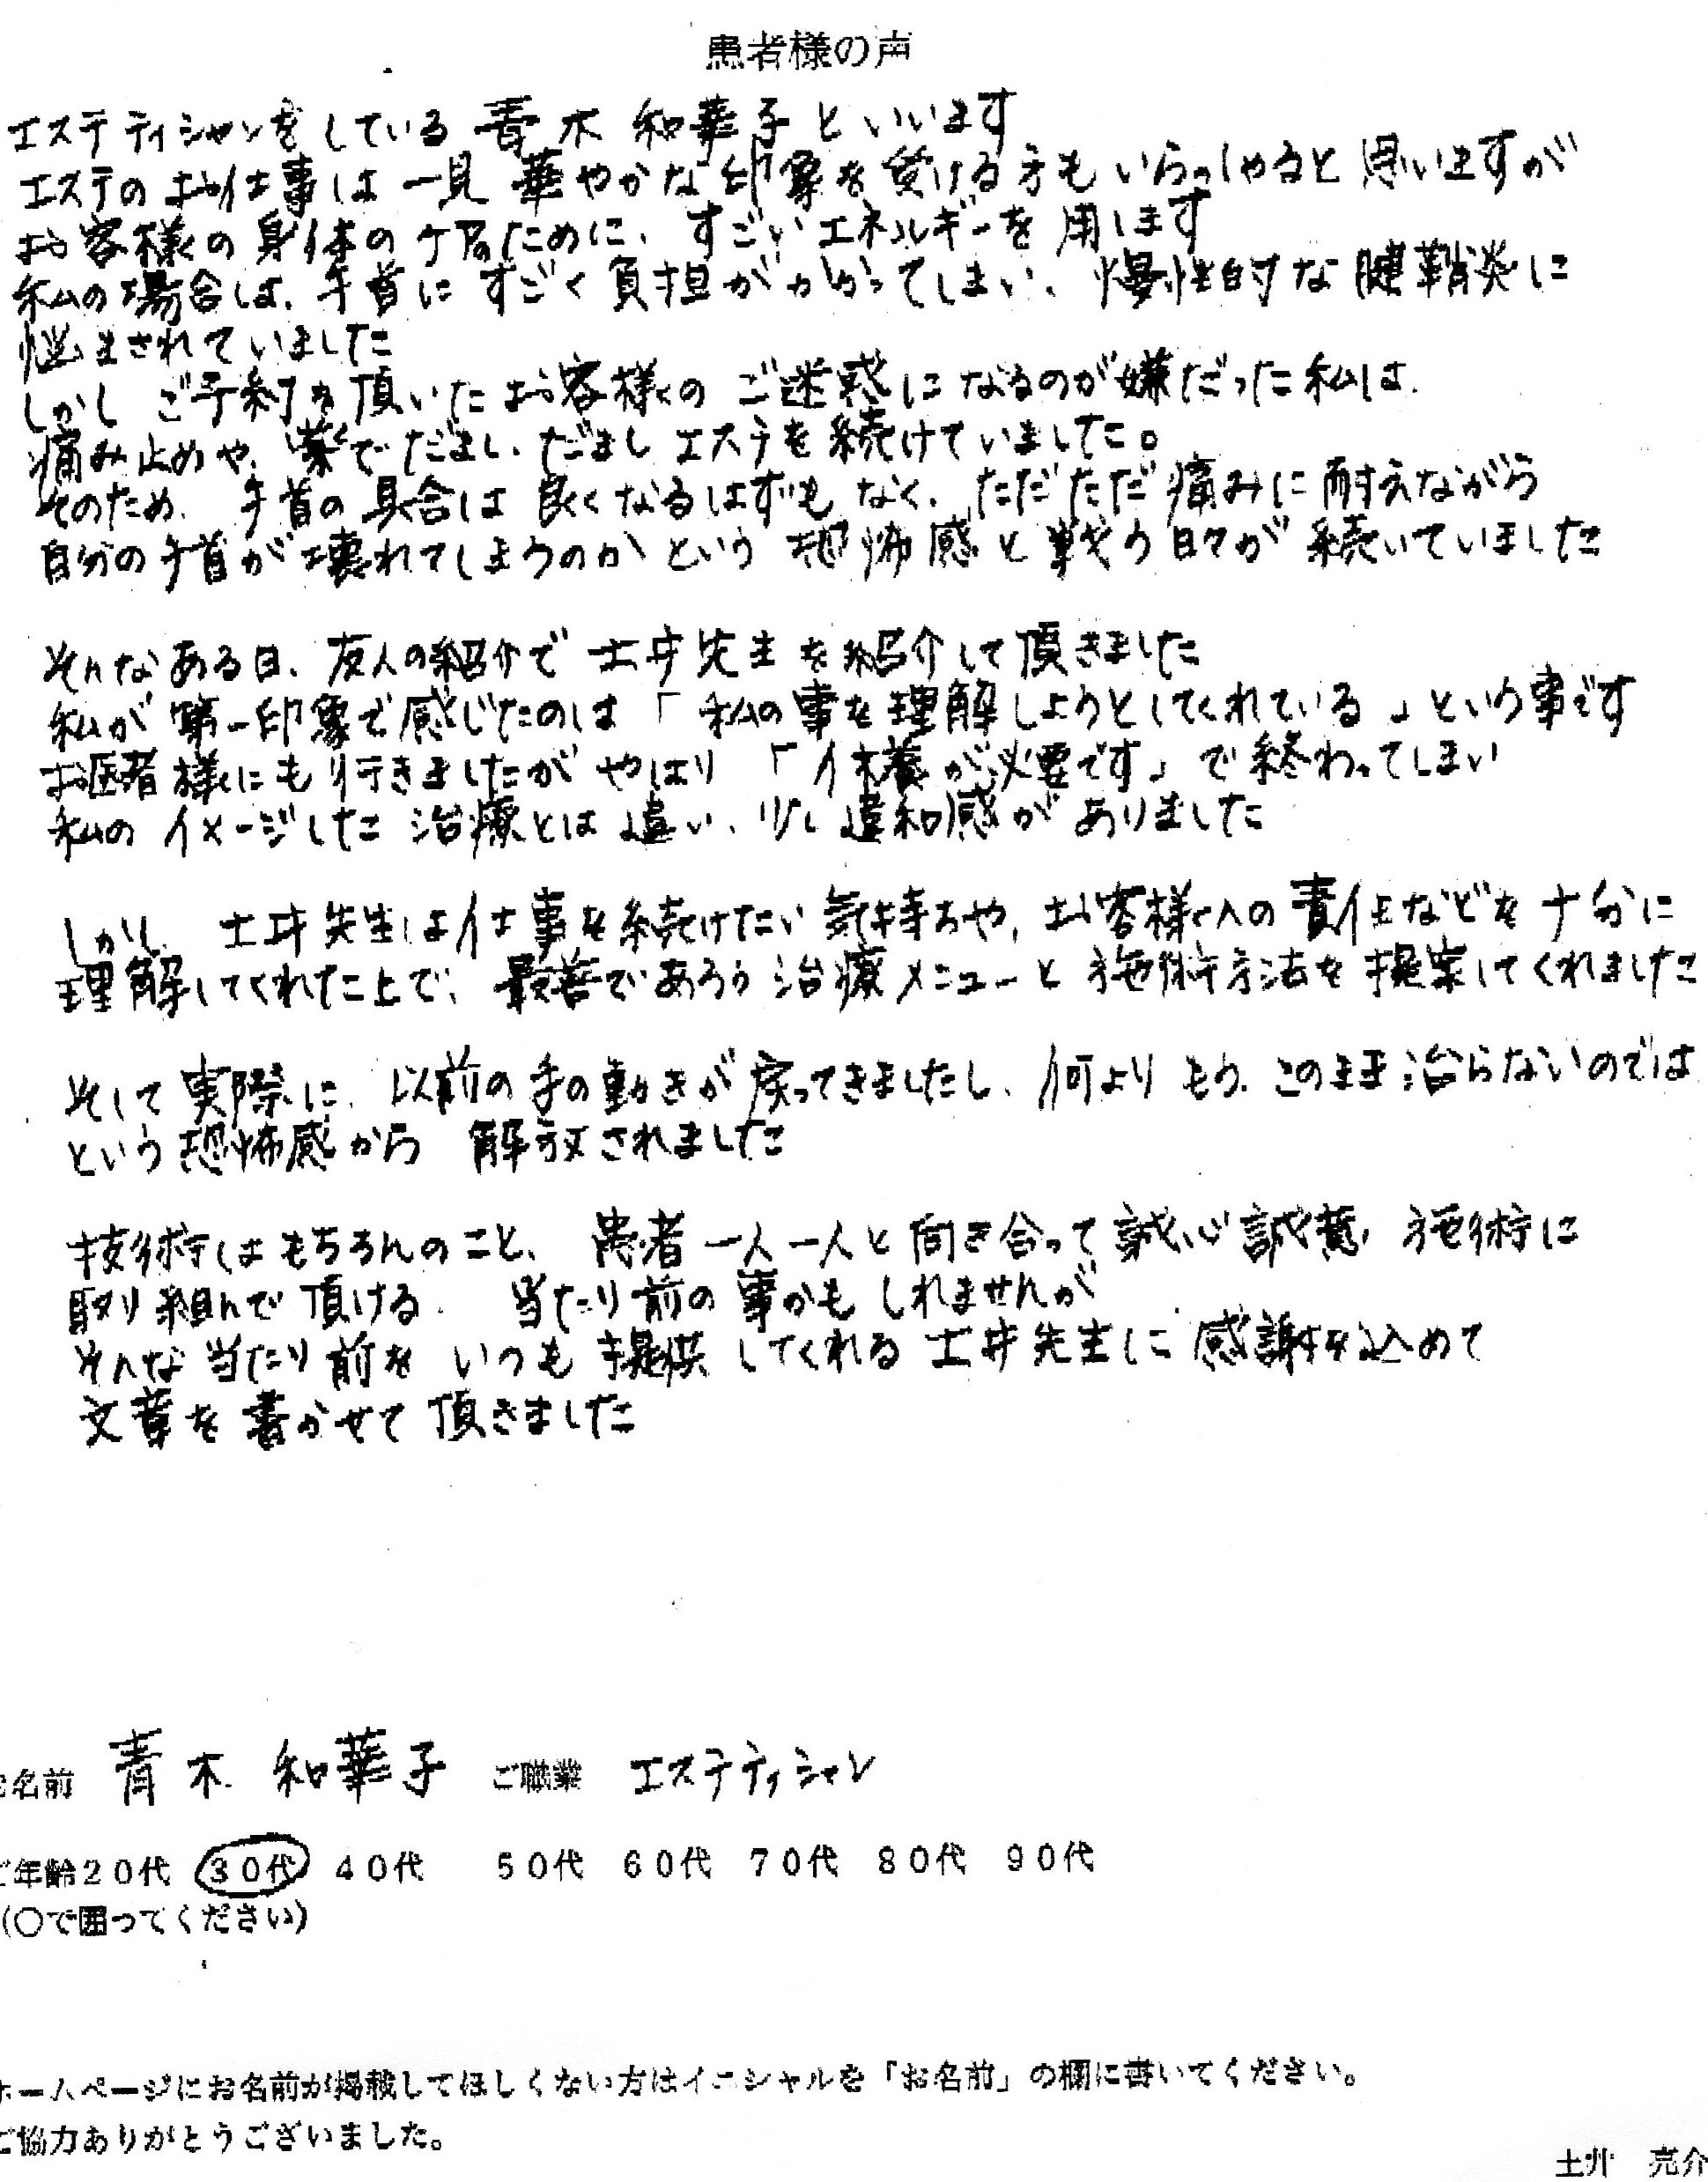 患者様の声
エステティシャンをしている 青木 和華子 といいます
エステの お仕事は 一見 華やかな印象を 受ける方も いらっしゃると 思いますが
お客様の 身体の ケアのために、すごい エネルギーを 用します
私の場合は、手首に すごく 負担が かかってしまい、慢性的な 腱鞘炎に
悩まされていました
しかし ご予約を 頂いた お客様の ご迷惑に なるのが 嫌だった 私は、
痛み止めや、薬で だまし、だまし エステを 続けていました。
そのため、手首の 具合は 良くなるはずも なく、ただただ 痛みに 耐えながら
自分の 手首が 壊れてしまうのか という 恐怖感と 戦う 日々が 続いていました
そんな ある日、友人の紹介で 土井先生を 紹介して 頂きました
私が 第一印象で 感じたのは 「私の事を 理解しようとしてくれている」という事です
お医者様にも 行きましたが やはり 「休養が必要です」で 終わってしまい
私の イメージした 治療とは 違い、少し 違和感が ありました
しかし、土井先生は 仕事を 続けたい 気持ちや、お客様への 責任などを 十分に
理解してくれた上で、最善であろう 治療メニューと 施術方法を 提案してくれました
そして 実際に、以前の 手の動きが 戻ってきましたし、何より もう、このまま 治らないのでは
という 恐怖感から 解放されました
技術は もちろんのこと、患者 一人一人と 向き合って 誠心誠意、施術に
取り組んで 頂ける。当たり前の 事かも しれませんが
そんな 当たり前を いつも 提供 してくれる 土井先生に 感謝を込めて
文章を 書かせて 頂きました
名前 青木 和華子 ご職業 エステティシャン
ご年齢20代 30代 40代 50代 60代 70代 80代 90代
(○で囲ってください)
ホームページにお名前が掲載してほしくない方はイニシャルを「お名前」の欄に書いてください。
ご協力ありがとうございました。
土井 亮介